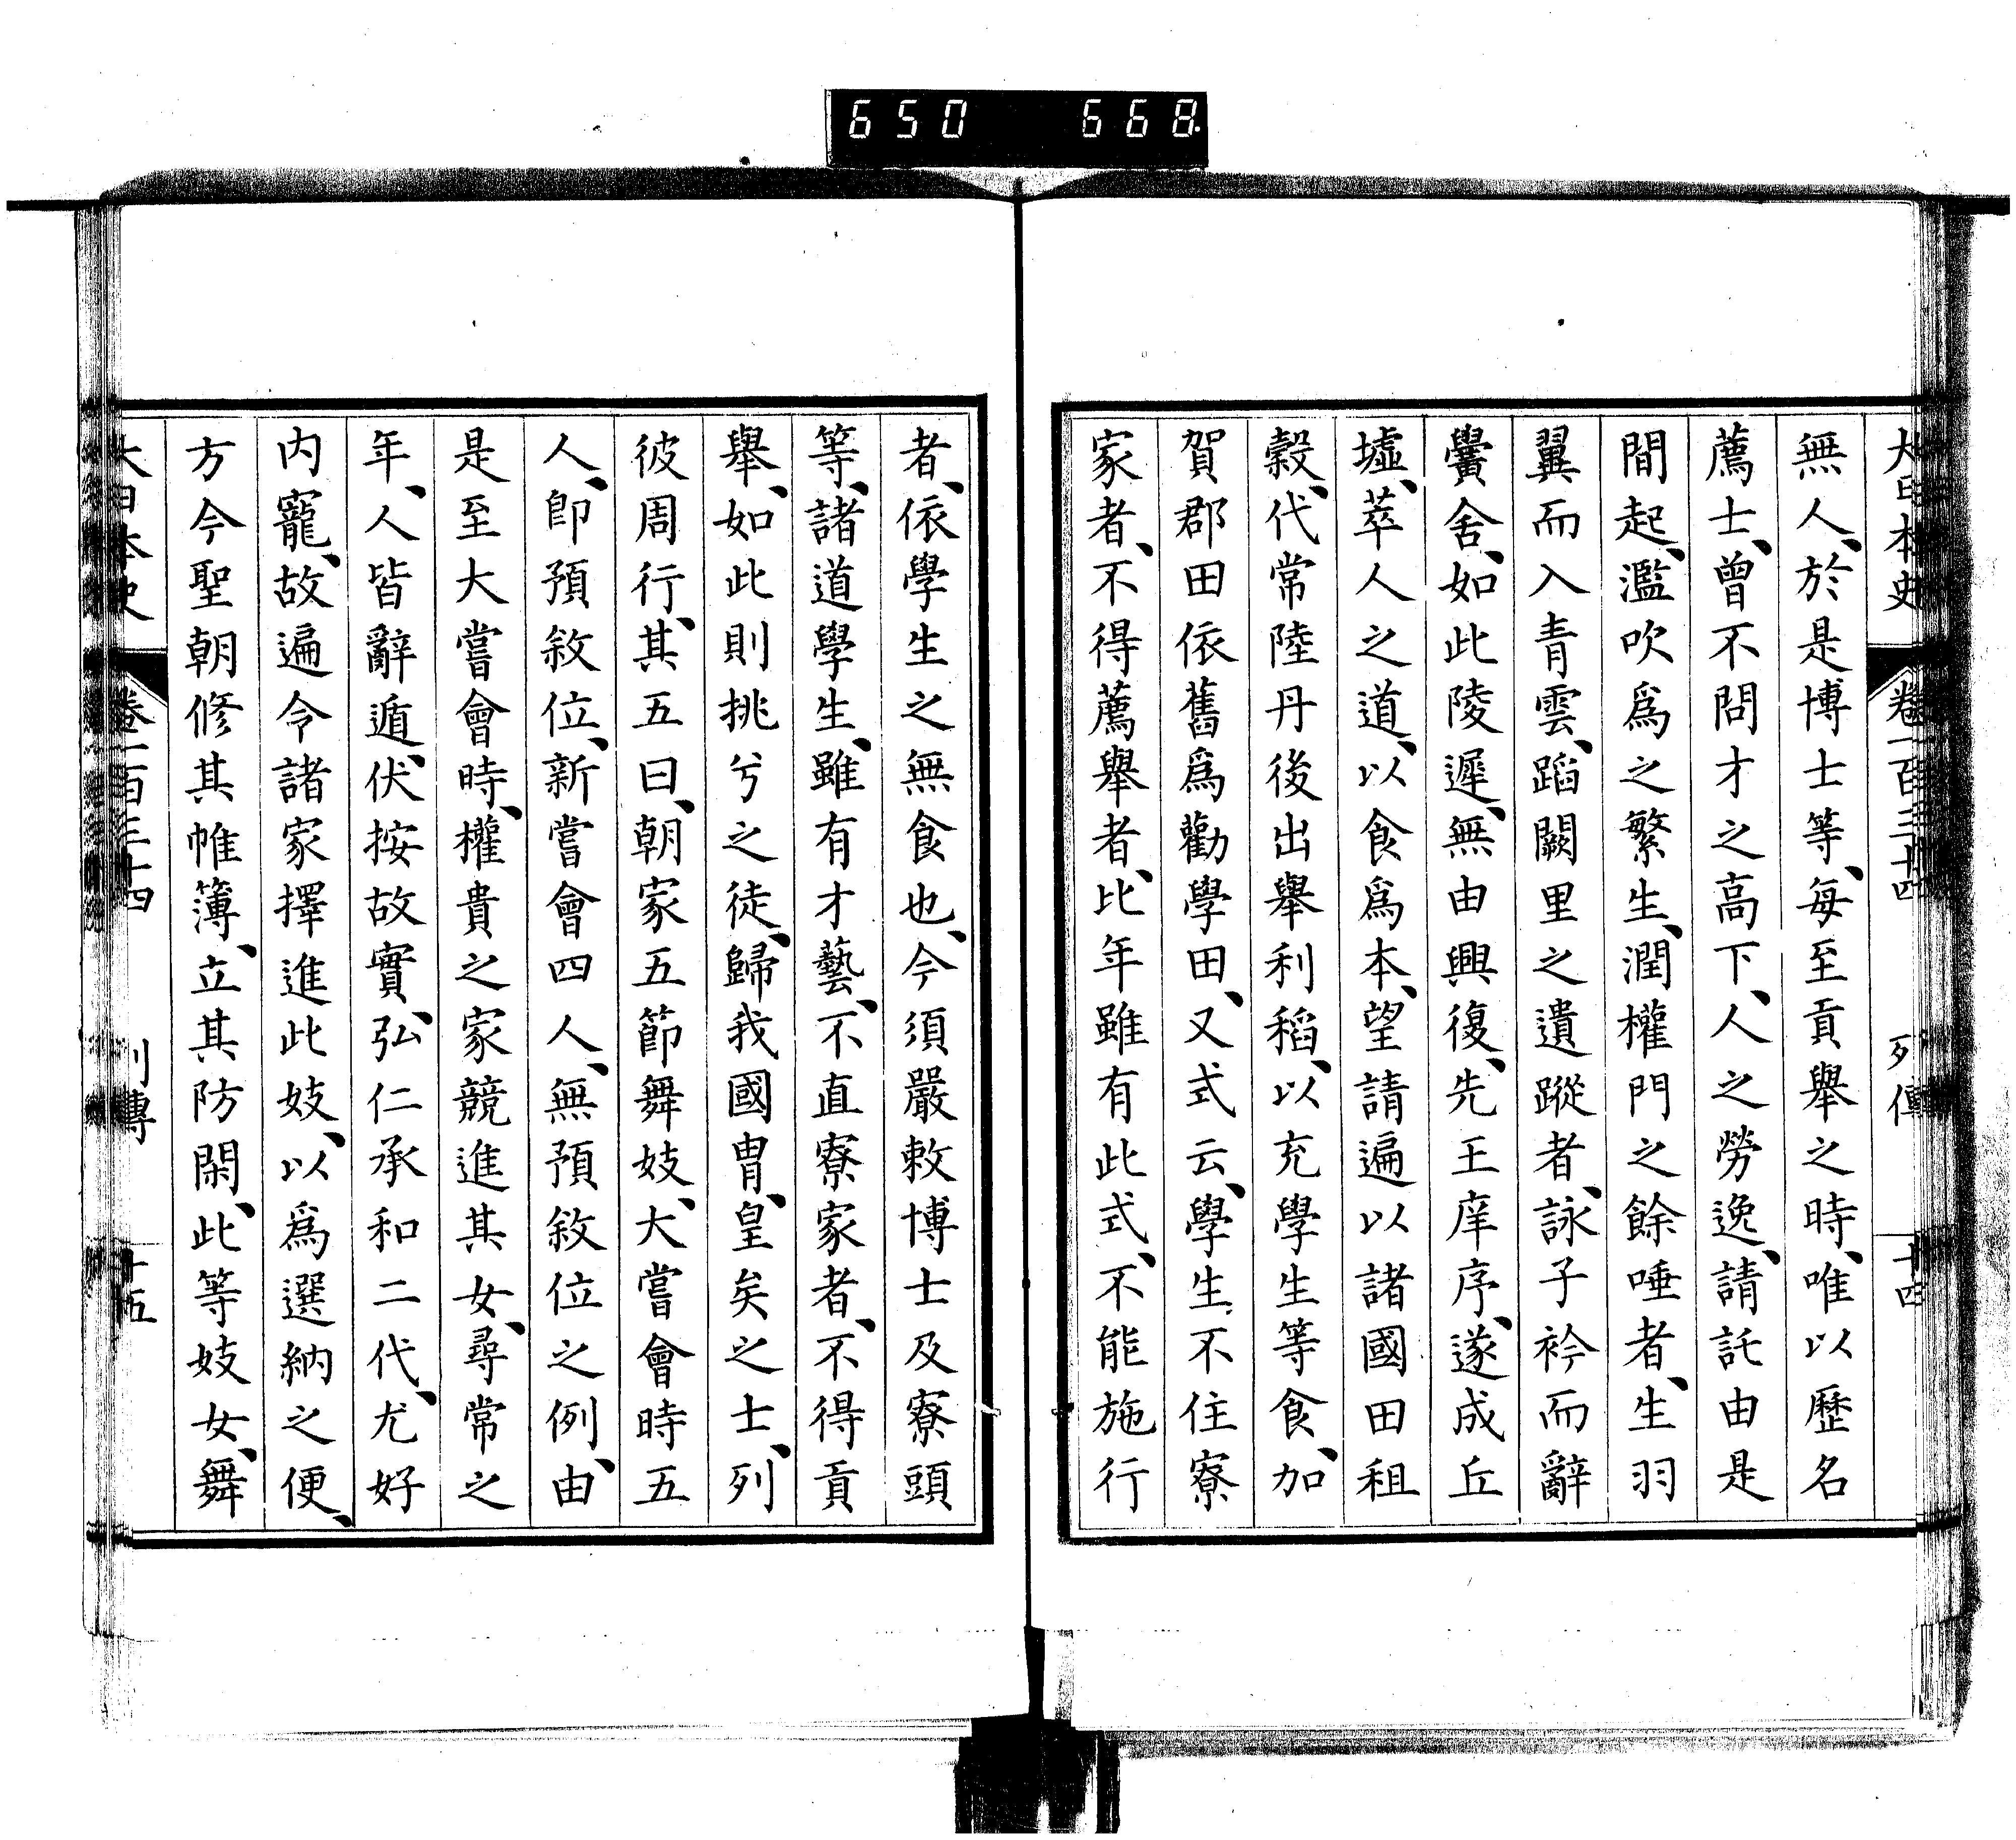 650 668
大日本史 卷一百三十四 列傳 十四
無人、於是博士等、每至貢舉之時、唯以歷名
薦士、曾不問才之高下、人之勞逸、請託由是
間起、濫吹爲之繁生、潤權門之餘唾者、生羽
翼而入青雲、蹈闕里之遺蹤者、詠子衿而辭
黌舍、如此陵遲、無由興復、先王庠序、遂成丘
墟、萃人之道、以食爲本、望請遍以諸國田租
穀、代常陸丹後出舉利稻、以充學生等食、加
賀郡田依舊爲勸學田、又式云、學生不住寮
家者、不得薦舉者、比年雖有此式、不能施行
者、依學生之無食也、今須嚴敕博士及寮頭
等、諸道學生、雖有才藝、不直寮家者、不得貢
舉、如此則挑兮之徒、歸我國胄、皇矣之士、列
彼周行、其五曰、朝家五節舞妓、大嘗會時五
人、卽預敘位、新嘗會四人、無預敘位之例、由
是至大嘗會時、權貴之家競進其女、尋常之
年、人皆辭遁、伏按故實、弘仁承和二代、尤好
内寵、故遍令諸家擇進此妓、以爲選納之便、
方今聖朝修其帷簿、立其防閑、此等妓女、舞
大日本史 卷一百三十四 列傳 十五